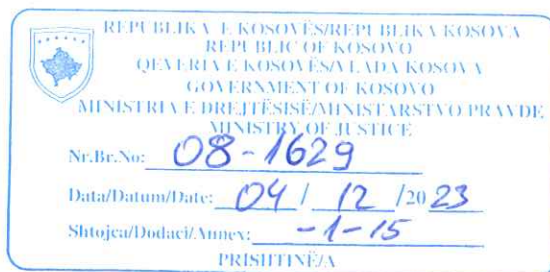 REPUBLIKA E KOSOVËS/REPUBLIKA KOSOVA
REPUBLIC OF KOSOVO
QEVERIA E KOSOVËS/VLADA KOSOVA
GOVERNMENT OF KOSOVO
MINISTRIA E DREJTËSISË/MINISTARSTVO PRAVDE
MINISTRY OF JUSTICE
Nr.Br.No: 08-1629
Data/Datum/Date: 04 / 12 /20 23
Shtojca/Dodaci/Annex: -1-15
PRISHTINË/A